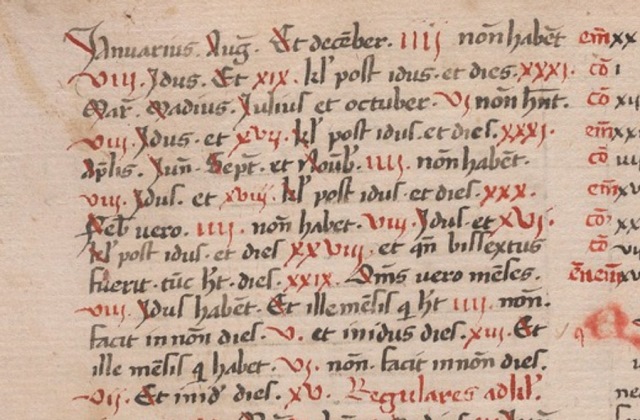 Januarius. Aug̃. Et decẽber. IIII nõn habẽt
VIII. Jdus. Et XIX. kl̃ post idus. et dies. XXXI.
Mar̃. Madius. Julius et octuber. VI nõn hñt.
VIII. Jdus. et XVII. kl̃ post idus. et dies. XXXI.
Ap̃lis. Jun̄. Sept̃. et Nouẽb̃. IIII. nõn habẽt.
VIII. Jdus. et XVIII. kl̃ post idus et dies. XXX.
Feb̃ vero. IIII. nõn habet. VIII. Jdus et XVI.
kl̃ post idus. et dies XXVIII. et qñ bissextus
fuerit. tũc h̃t. dies. XXIX. Om̃s vero mẽses.
VIII. Jdus habẽt. Et ille mẽsis q h̃t IIII. nõn.
facit in nõn dies. V. et in idus dies. XIII. Et
ille mẽsis q habet. VI. nõn. facit in nõn dies.
VII. Et in id̃ dies. XV. Regulares ad kl̃.